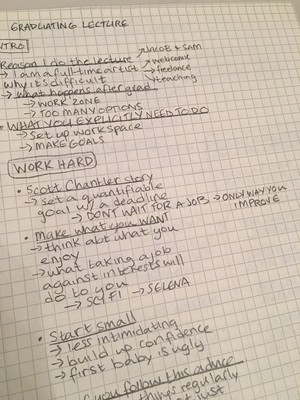 GRADUATING LECTURE
INTRO
Reason I do the lecture
→ I am a full-time artist
→ webcomix
→ freelance
→ teaching
why it's difficult
→ what happens after grad
→ WORK ZONE
→ TOO MANY OPTIONS
• WHAT YOU EXPLICITLY NEED TO DO
→ Set up workspace
→ MAKE GOALS
WORK HARD
• Scott Chantler story
→ set a quantifiable
goal w/ a deadline
→ DON'T WAIT FOR A JOB → ONLY WAY YOU
IMPROVE
• Make what you WANT
→ think abt what you
enjoy
→ what taking a job
against interests will
do to you
→ SCI FI → SELENA
• Start small
→ less intimidating
→ build up confidence
→ first baby is ugly
if you follow this advice
things regularly
just